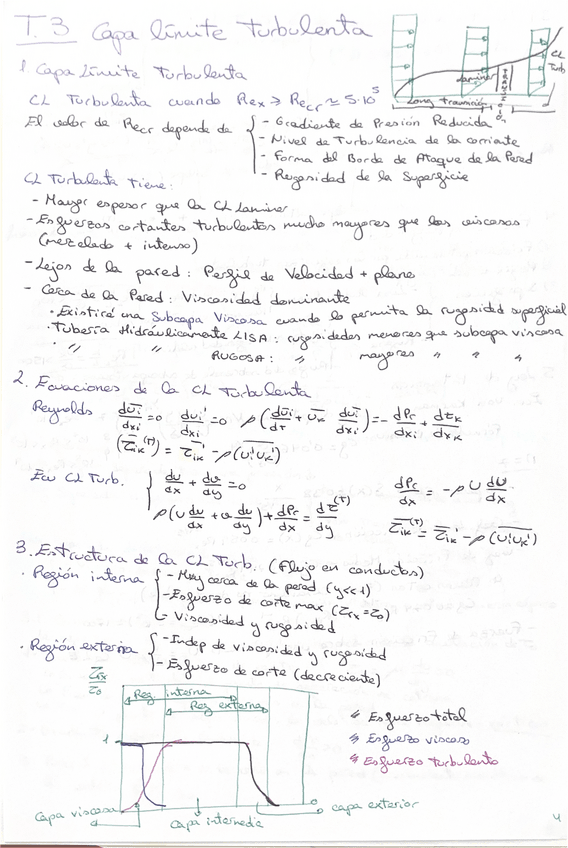 T.3 Capa límite Turbulenta
Laminar
CL
Turb
Long transición
1 Capa Límite Turbulenta
CL Turbulenta cuando Rex > Recr ≃ 5·10⁵
El valor de Recr depende de
- Gradiente de Presión Reducida
- Nivel de Turbulencia de la corriente
- Forma del Borde de Ataque de la Pared
- Rugosidad de la Superficie
CL Turbulenta Tiene:
- Mayor espesor que la CL Laminar
- Esfuerzos cortantes turbulentos mucho mayores que los viscosos
(mezclado + intenso)
- Lejos de la pared: Perfil de Velocidad + plano
- Cerca de la Pared: Viscosidad dominante
· Existirá una Subcapa Viscosa cuando lo permita la rugosidad superficial
· Tubería Hidráulicamente LISA: rugosidades menores que subcapa viscosa
" " RUGOSA: " mayores " " "
2. Ecuaciones de la CL Turbulenta
Reynolds dūi/dxi = 0 dui'/dxi = 0 ρ(dūi/dτ + ūk dūi/dxi) = - dPc/dxi + dτk/dxk
(τik⁽ᵀ⁾) = τik' - ρ(ui'uk')
Ecu CL Turb.
du/dx + dv/dy = 0 dPc/dx = -ρ U dU/dx
ρ(u du/dx + v du/dy) + dPc/dx = dτ⁽ᵀ⁾/dy τik⁽ᵀ⁾ = τik' - ρ(ui'uk')
3. Estructura de la CL Turb. (Flujo en conductos)
· Región interna
- Muy cerca de la pared (y<<1)
- Esfuerzo de corte max (τrx = τ0)
- Viscosidad y rugosidad
· Región externa
- Indep de viscosidad y rugosidad
- Esfuerzo de corte (decreciente)
τrx/τ0
Reg. interna
Reg externa
1
" Esfuerzo total
" Esfuerzo viscoso
" Esfuerzo turbulento
Capa viscosa
capa intermedia
capa exterior
4